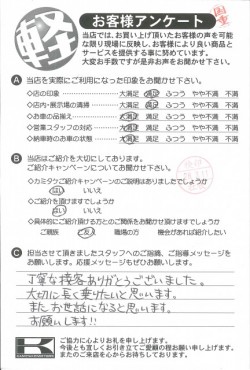 軽
お客様アンケート
当店では、お買い上げ頂いたお客様の声を可能
な限り現場に反映し、お客様により良い商品と
サービスを提供する事に努めています。
大変お手数ですが是非お声をお聞かせ下さい。
A 当店を実際にご利用になった印象をお聞かせ下さい。
◇店の印象 大満足 満足 ふつう やや不満 不満
◇店内・展示場の清掃 大満足 満足 ふつう やや不満 不満
◇お車の品揃え 大満足 満足 ふつう やや不満 不満
◇営業スタッフの対応 大満足 満足 ふつう やや不満 不満
◇納車時のお車の状態 大満足 満足 ふつう やや不満 不満
B 当店はご紹介を大切にしております。
ご紹介キャンペーンについてお聞かせ下さい。
◇カミタケご紹介キャンペーンのご説明はありましたでしょうか
はい いいえ
◇ご紹介を頂けますでしょうか
はい いいえ
◇具体的にご紹介頂ける方とのご関係をお聞かせ頂けますでしょうか
ご親族 ご友人 職場の方 機会があれば紹介したい
C 担当させて頂きましたスタッフへのご指摘、ご指導メッセージを
お願いします。応援メッセージもぜひお願いします。
丁寧な接客ありがとうございました。
大切に長く乗りたいと思います。
またお世話になると思います。
お願いします!!
K
ご協力に心よりお礼を申し上げます。
今後とも宜しくお引き立てご愛顧の程お願い申し上げます。
またのご来店を心からお待ちしております。